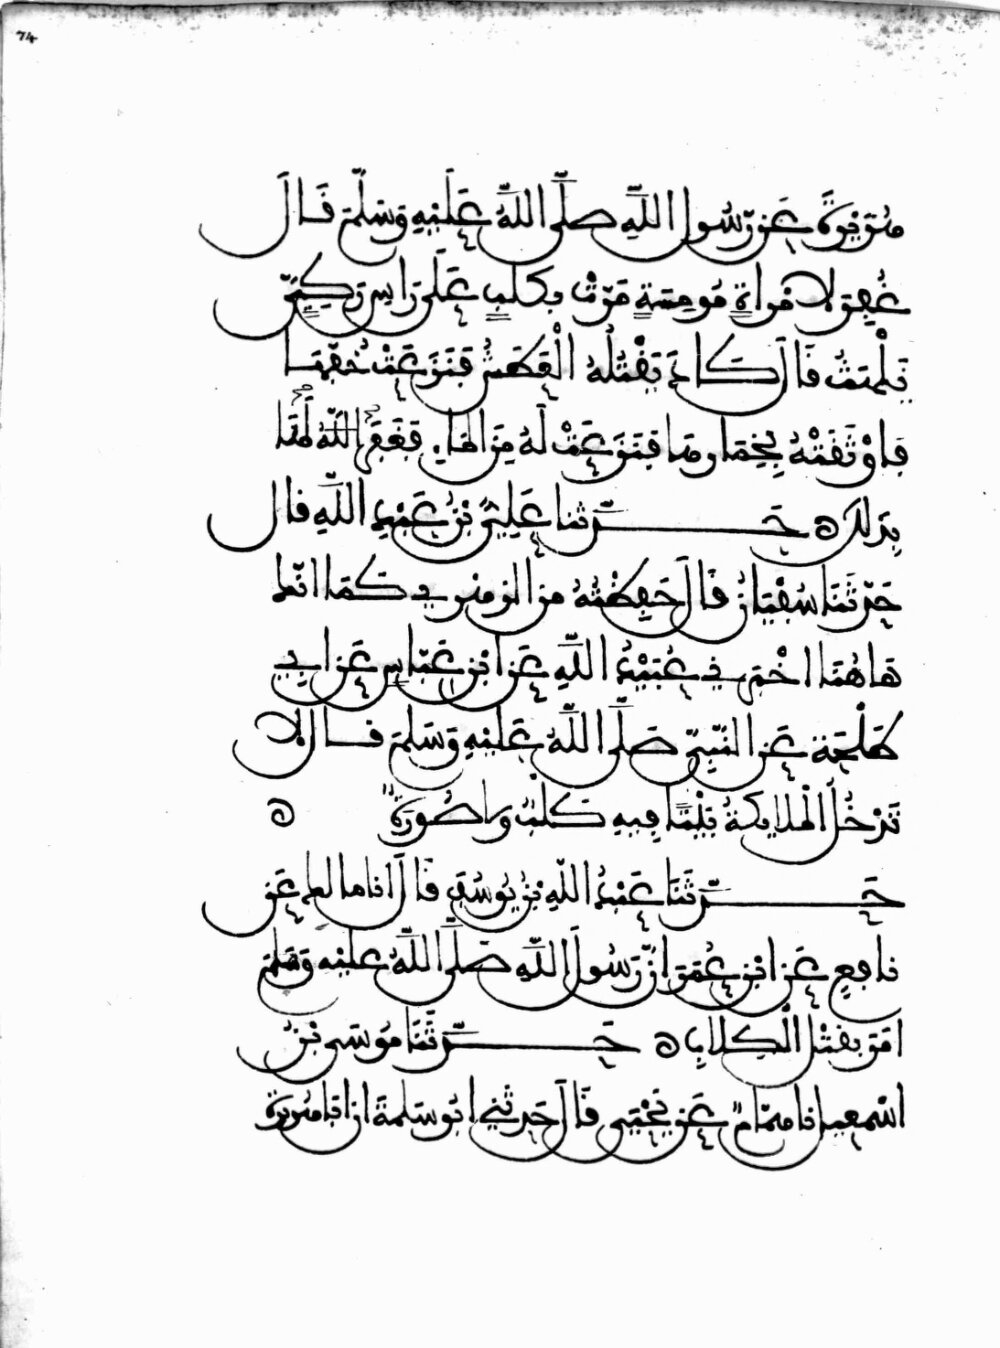 74
هُرَيْرَةَ عَن رَّسُولِ اللَّهِ صَلَّى اللَّهُ عَلَيْهِ وَسَلَّمَ قَالَ
غُفِرَ لِامْرَأَةٍ مُومِسَةٍ مَرَّتْ بِكَلْبٍ عَلَى رَأْسِ رَكِيٍّ
يَلْهَثُ قَالَ كَادَ يَقْتُلُهُ الْعَطَشُ فَنَزَعَتْ خُفَّهَا
فَأَوْثَقَتْهُ بِخِمَارِهَا فَنَزَعَتْ لَهُ مِنَ الْمَا. فَغَفَرَ اللَّهُ لَهَا
بِذَلِكَ حَدَّثنا عَلِيُّ بْنُ عَبْدِ اللَّهِ قال
حَدَّثَنَا سُفْيَانُ قَالَ حَفِظْتُهُ من الزهري كَمَا انّك
هَاهُنَا اخْبَرني عُبَيْدُ اللَّهِ عَنِ ابْنِ عَبَّاسٍ عَن أبي
طَلْحَةَ عَنِ النَّبِيِّ صَلَّى اللَّهُ عَلَيْهِ وَسَلَّمَ قال لا
تَدْخُلُ الْمَلايكَةُ بَيْتًا فِيهِ كَلْبٌ ولا صُورَةٌ
حَدَّثَنَا عَبْدُ اللَّهِ بْنُ يُوسُفَ قَالَ انا مالك عَن
نافِعٍ عَنِ ابْنِ عُمَرَ انَّ رَسُولَ اللَّهِ صَلَّى اللَّهُ عَلَيْهِ وَسَلَّمَ
امَرَ بِقَتْلِ الْكِلَابِ حَدَّثَنَا مُوسَى بْنُ
اسْمعيل نا همّامٌ عَن يَحْيَى قَالَ حَدثني ابُو سَلَمَةَ ان ابا هُريرة